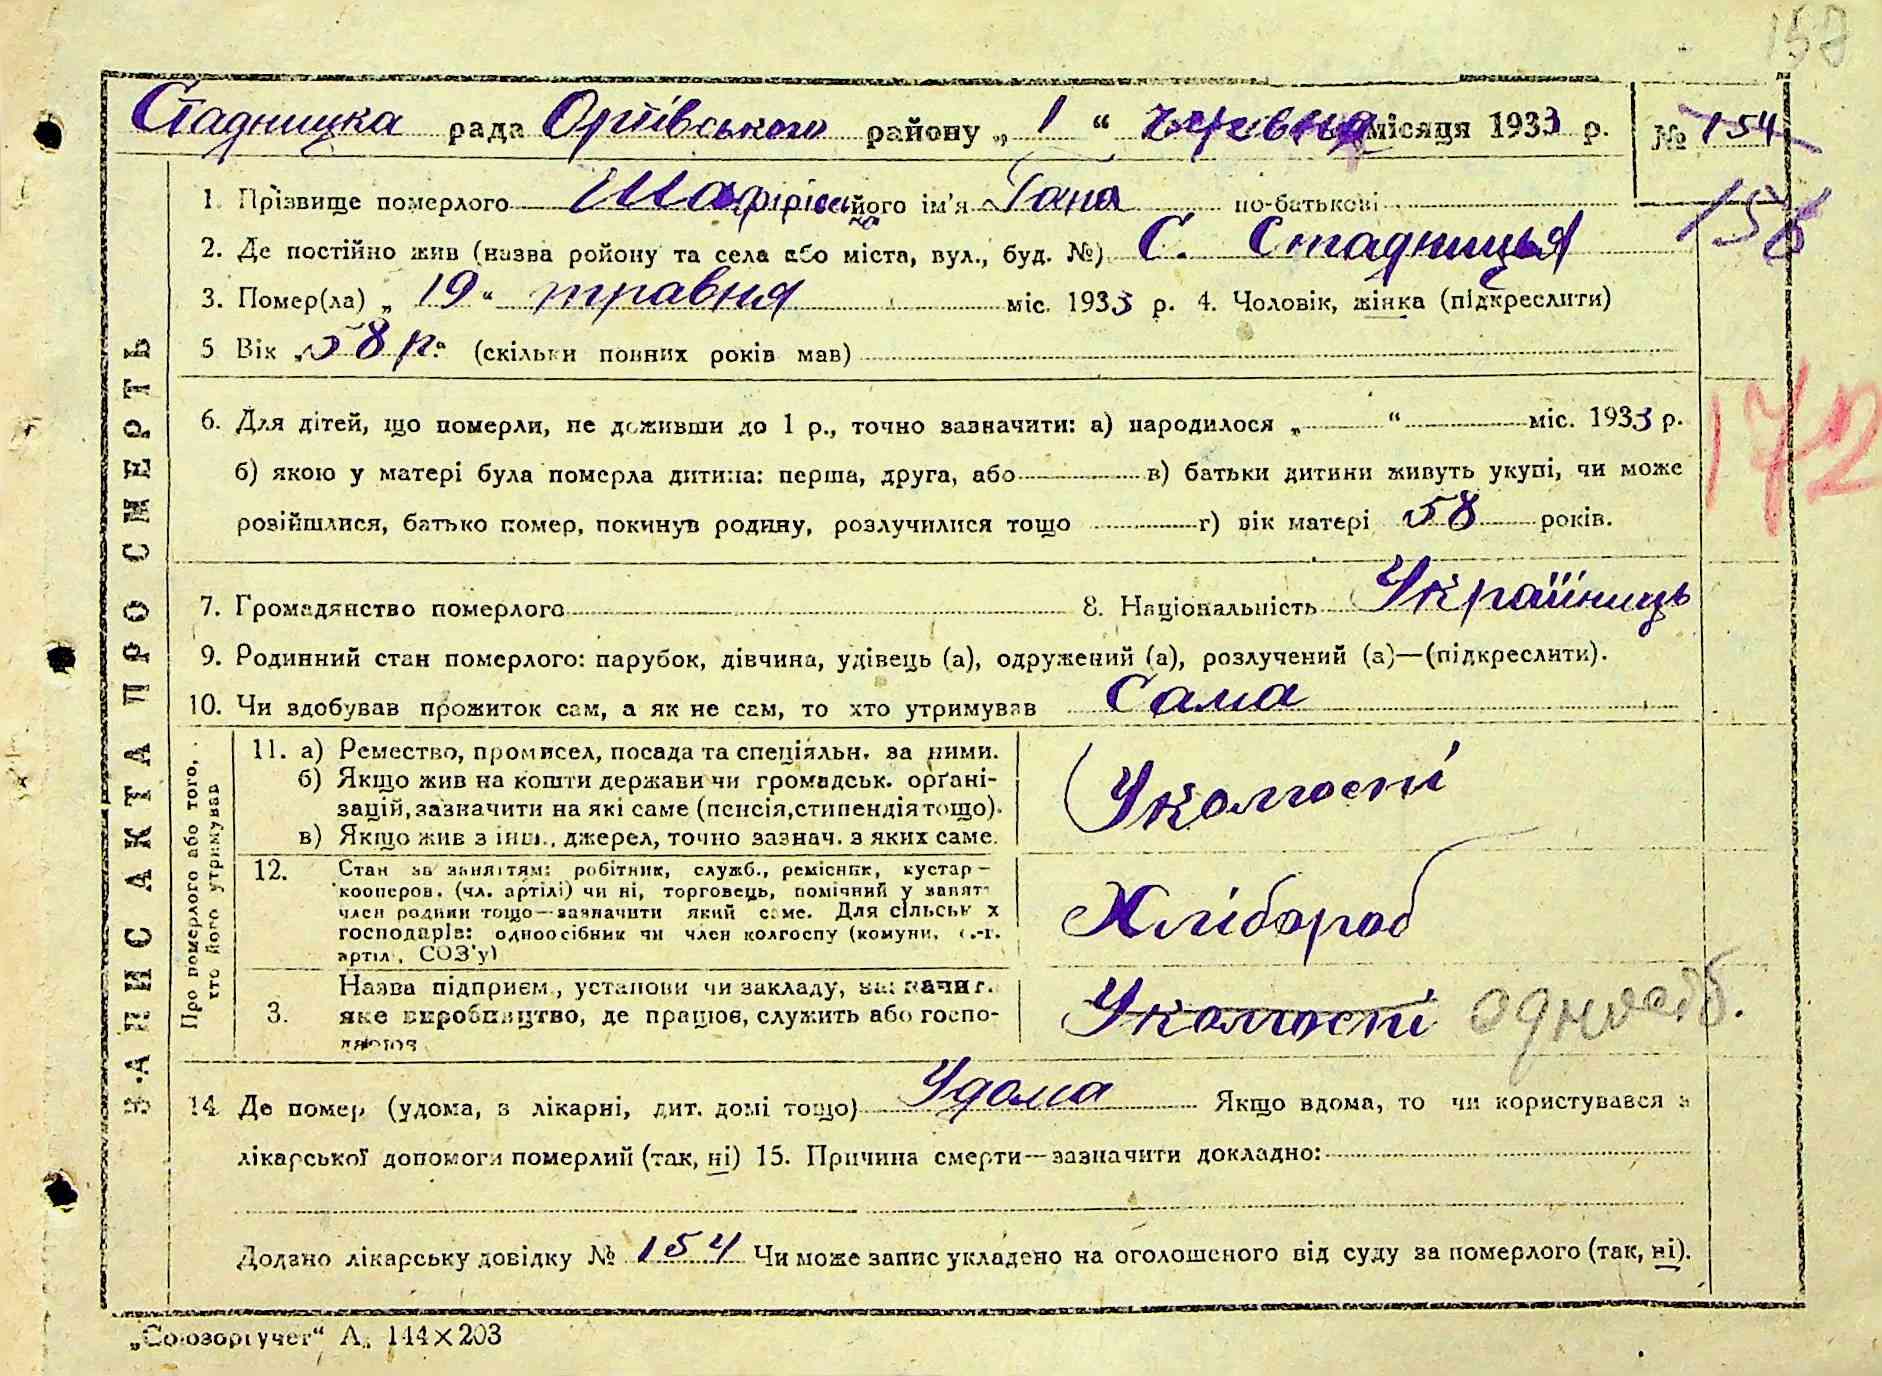 157
Стадницка рада Оріївського району „ 1 “ червня місяця 1933 р. № 154
156
1. Прізвище померлого його ім'я Гана по-батькові
2. Де постійно жив (назва ройону та села або міста, вул., буд. №) С. Стадниця
3. Помер(ла) „ 19 “ травня міс. 1933 р. 4. Чоловік, жінка (підкреслити)
5 Вік „ 58 р. “ (скільки повних років мав)
6. Для дітей, що померли, не доживши до 1 р., точно зазначити: а) народилося „ “ міс. 1933 р.
172
б) якою у матері була померла дитина: перша, друга, або в) батьки дитини живуть укупі, чи може
розійшлися, батько помер, покинув родину, розлучилися тощо г) вік матері 58 років.
7. Громадянство померлого 8. Національність Україниць
9. Родинний стан померлого: парубок, дівчина, удівець (а), одружений (а), розлучений (а)—(підкреслити).
10. Чи здобував прожиток сам, а як не сам, то хто утримував Сама
ЗАПИС АКТА ПРО СМЕРТЬ
Про померлого або того,
хто його утримував
11. а) Ремество, промисел, посада та спеціяльн. за ними.
б) Якщо жив на кошти держави чи громадськ. орґані-
зацій, зазначити на які саме (пенсія, стипендія тощо).
в) Якщо жив з інш., джерел, точно зазнач. з яких саме.
Уколгоспі
12. Стан за заняттям: робітник, служб., ремісник, кустар—
кооперов. (чл. артілі) чи ні, торговець, помічний у занят
член родини тощо—зазначити який саме. Для сільськ х
господарів: одноосібник чи член колгоспу (комуни, с.-г.
артіл, СОЗ'у)
Хлібороб
3. Назва підприєм., установи чи закладу, зазначиг.
яке виробництво, де працює, служить або госпо-
дарює
Уколгоспі одноосіб.
14 Де помер (удома, в лікарні, дит. домі тощо) Удома Якщо вдома, то чи користувався з
лікарської допомоги померлий (так, ні) 15. Причина смерти—зазначити докладно:
Додано лікарську довідку № 154 Чи може запис укладено на оголошеного від суду за померлого (так, ні).
„Союзоргучет“ А. 144×203